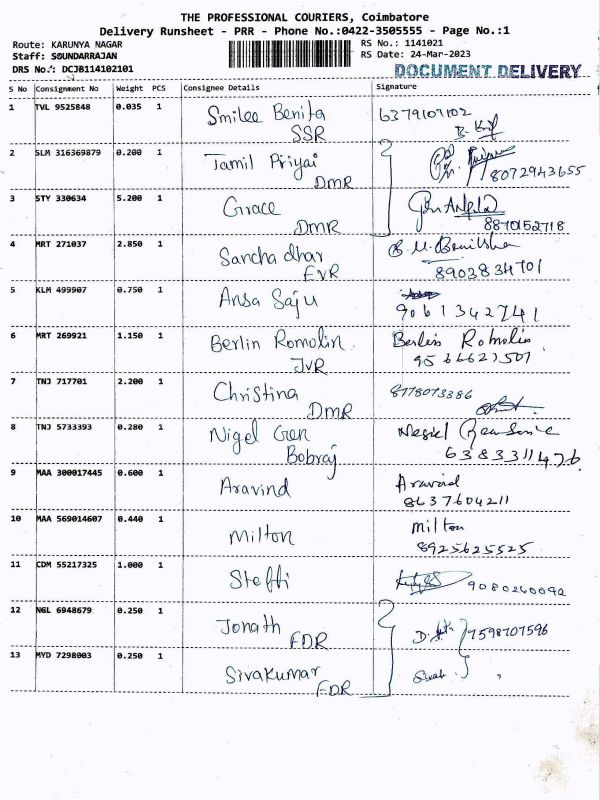 THE PROFESSIONAL COURIERS, Coimbatore
Delivery Runsheet - PRR - Phone No.:0422-3505555 - Page No.:1
Route: KARUNYA NAGAR RS No.: 1141021
Staff: SOUNDARRAJAN RS Date: 24-Mar-2023
DRS No.: DCJB114102101 DOCUMENT DELIVERY
S No Consignment No Weight PCS Consignee Details Signature
1 TVL 9525848 0.035 1 Smilee Benita 6379107102
SSR
2 SLM 316369879 0.200 1 Tamil Priyai
DMR 8072943655
3 STY 330634 5.200 1 Grace
DMR 8870152718
4 MRT 271037 2.850 1 Sancha dhar
EVR 8903834701
5 KLM 499907 0.750 1 Ansa Saju
9061342741
6 MRT 269921 1.150 1 Berlin Romolin Berlin Romolin
JVR 9566621507
7 TNJ 717701 2.200 1 Christina 8778073386
DMR
8 TNJ 5733393 0.280 1 Nigel Gren
Bobraj 6383311476
9 MAA 300017445 0.600 1 Aravind Aravind
8637604211
10 MAA 569014607 0.440 1 Milton Milton
8925625525
11 CDM 55217325 1.000 1 Steffi 9080260092
12 NGL 6948679 0.250 1 Jonath 7598707596
FDR
13 MYD 7298003 0.250 1 Sivakumar
FDR